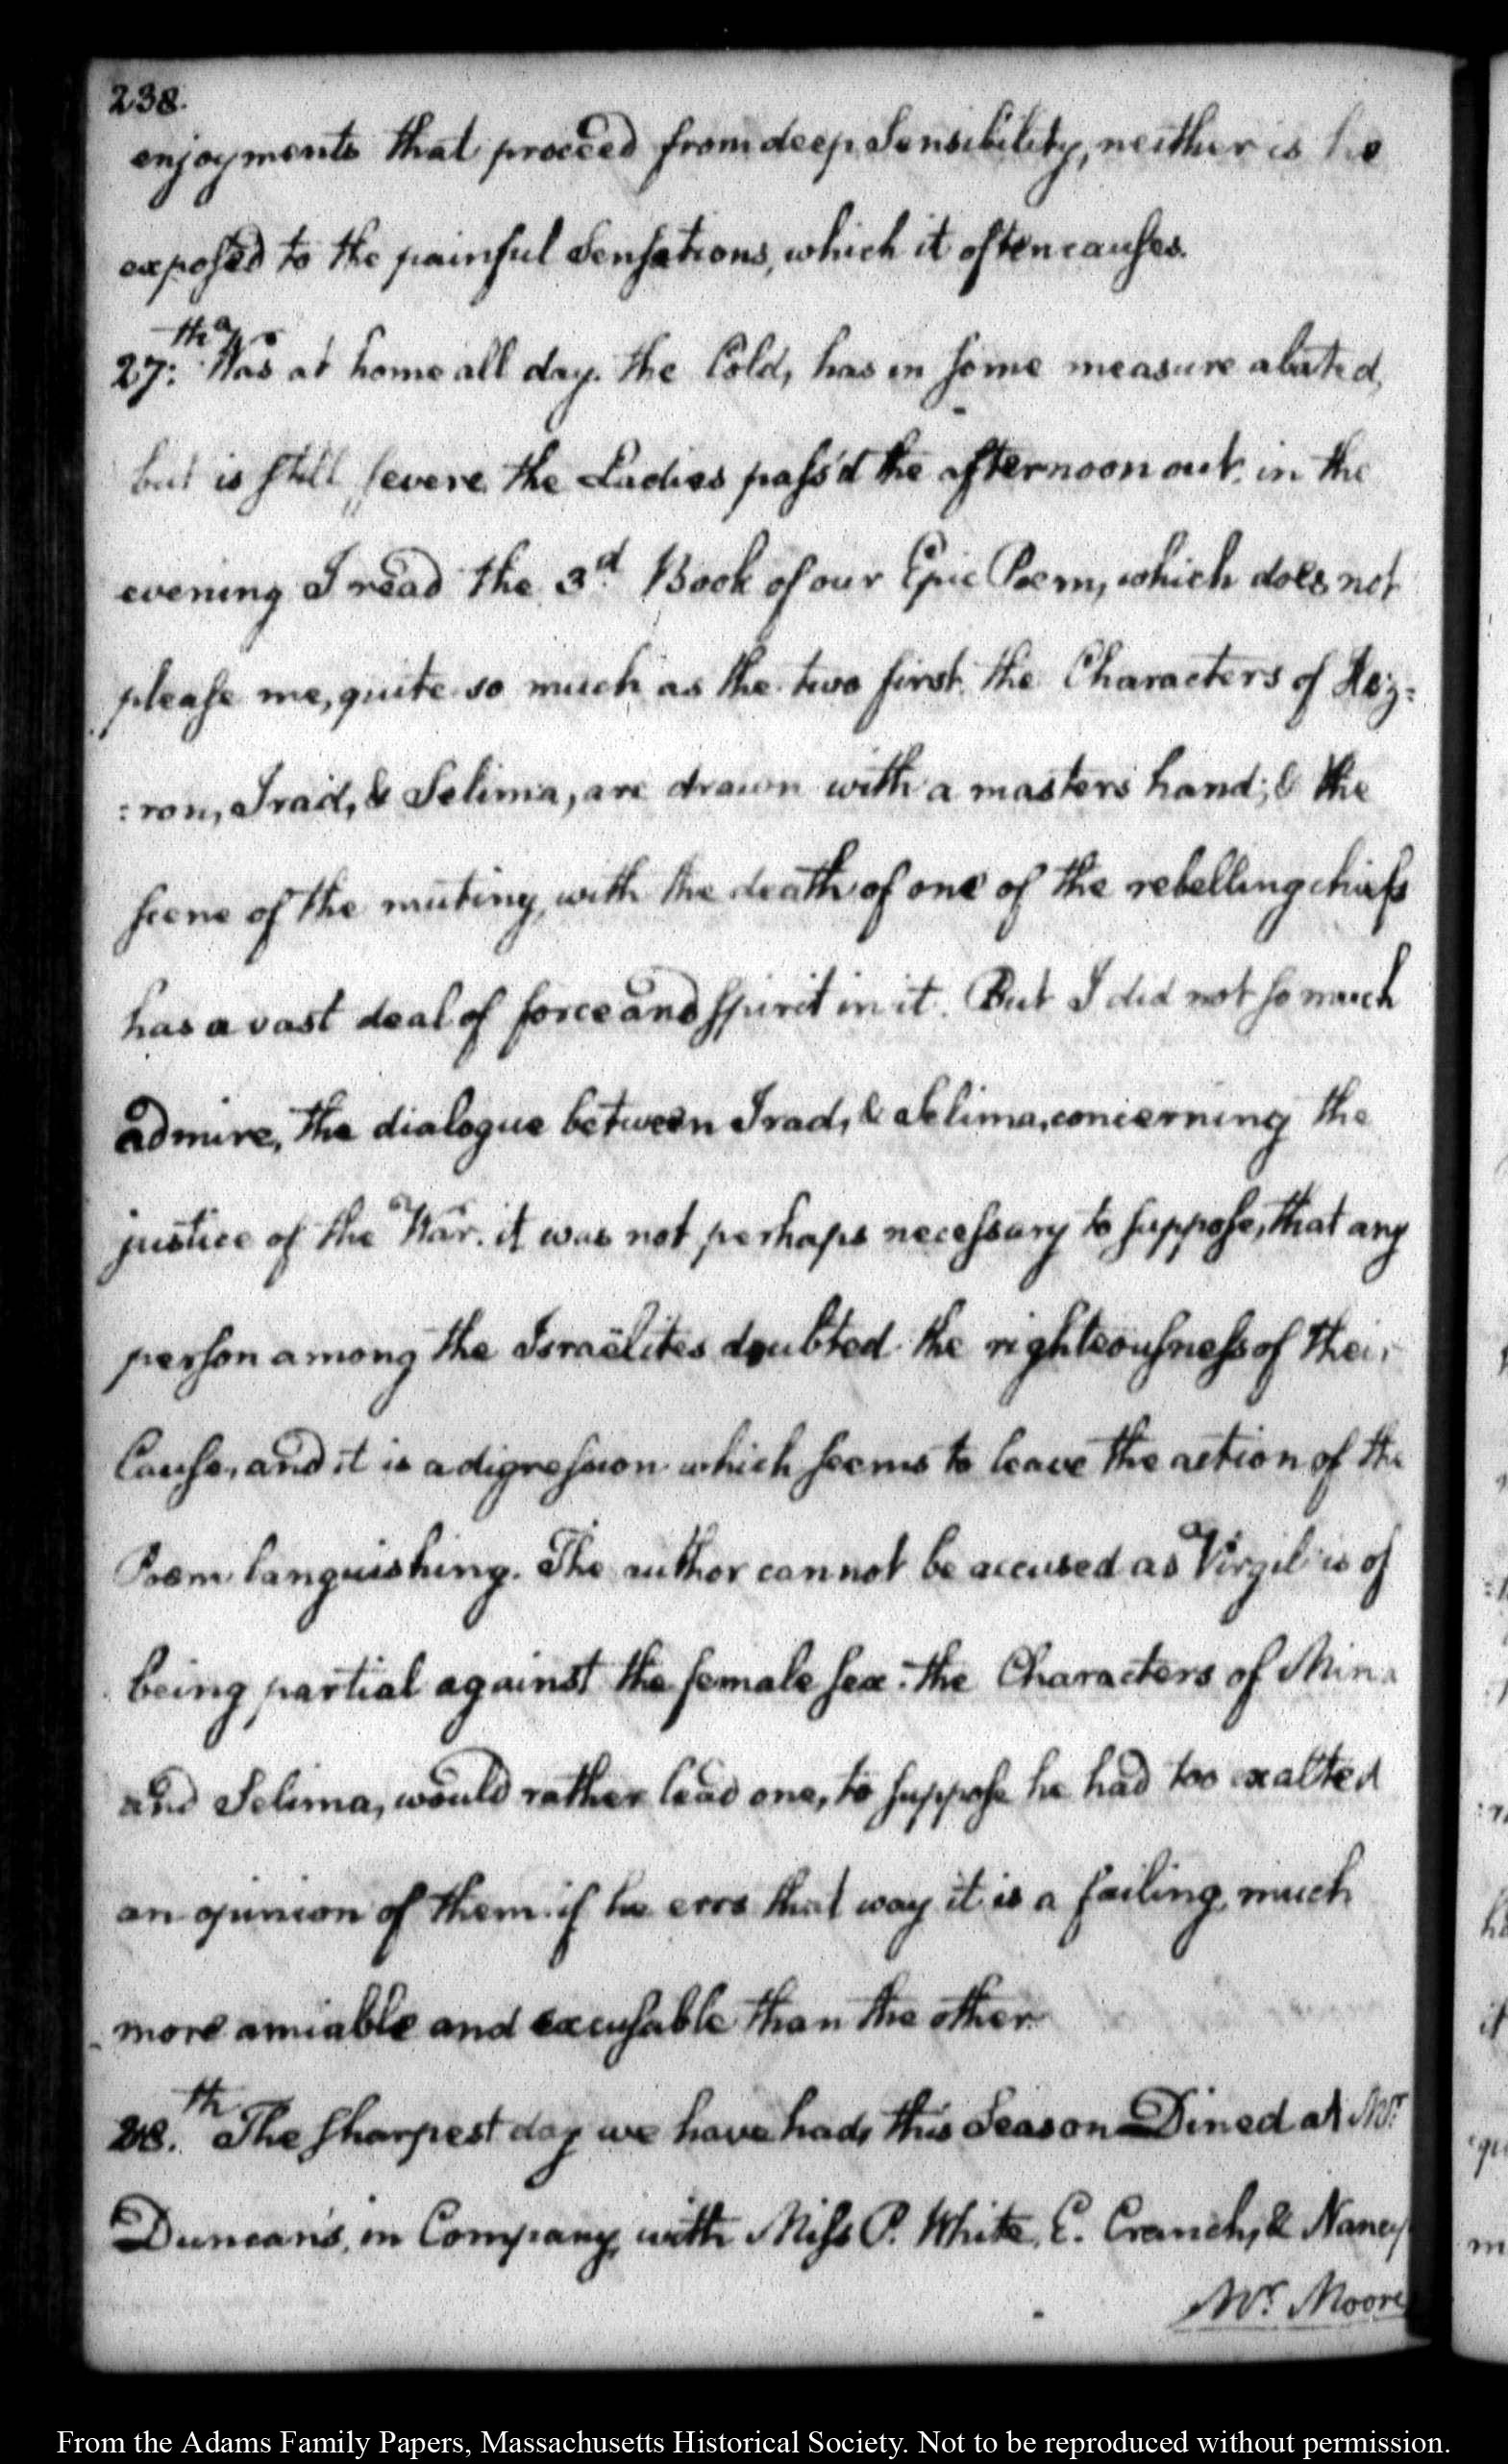 238.
enjoyments that proceed from deep Sensibility, neither is he
exposed to the painful Sensations, which it often causes.
27:th Was at home all day. the Cold, has in some measure abated,
but is still severe. the Ladies pass'd the afternoon out. in the
evening I read the 3.d Book of our Epic Poem, which does not
please me, quite so much as the two first. the Characters of Hez=
=ron, Irad, & Selima, are drawn with a masters hand; & the
scene of the mutiny, with the death of one of the rebelling chiefs
has a vast deal of force and spirit in it. But I did not so much
admire, the dialogue between Irad, & Selima, concerning the
justice of the War. it was not perhaps necessary to suppose, that any
person among the Israëlites doubted the righteousness of their
Cause, and it is a digression which seems to leave the action of the
Poem languishing. The author cannot be accused as Virgil is of
being partial against the female sex: the Characters of Mina
and Selima, would rather lead one, to suppose he had too exalted
an opinion of them. if he errs that way it is a failing, much
more amiable and excusable than the other.
28.th The sharpest day we have had, this Season Dined at Mr.
Duncan's, in Company, with Miss P. White, E. Cranch, & Nancy
Mr. Moore
From the Adams Family Papers, Massachusetts Historical Society. Not to be reproduced without permission.